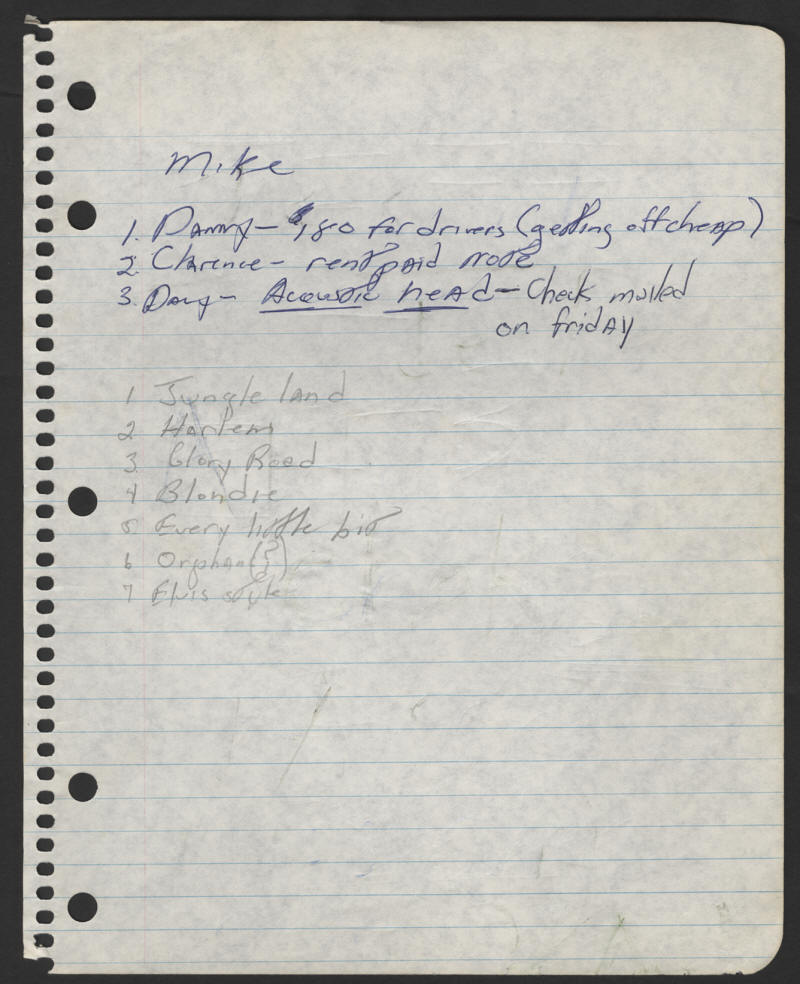 Mike
1. Danny - $180 for drivers (getting off cheap)
2. Clarence - rent paid note
3. Davy - Acoustic head - Check mailed
on friday
1 Jungle land
2 Harlems
3 Glory Road
4 Blondie
5 Every little bit
6 Orphan (?)
7 Elvis style